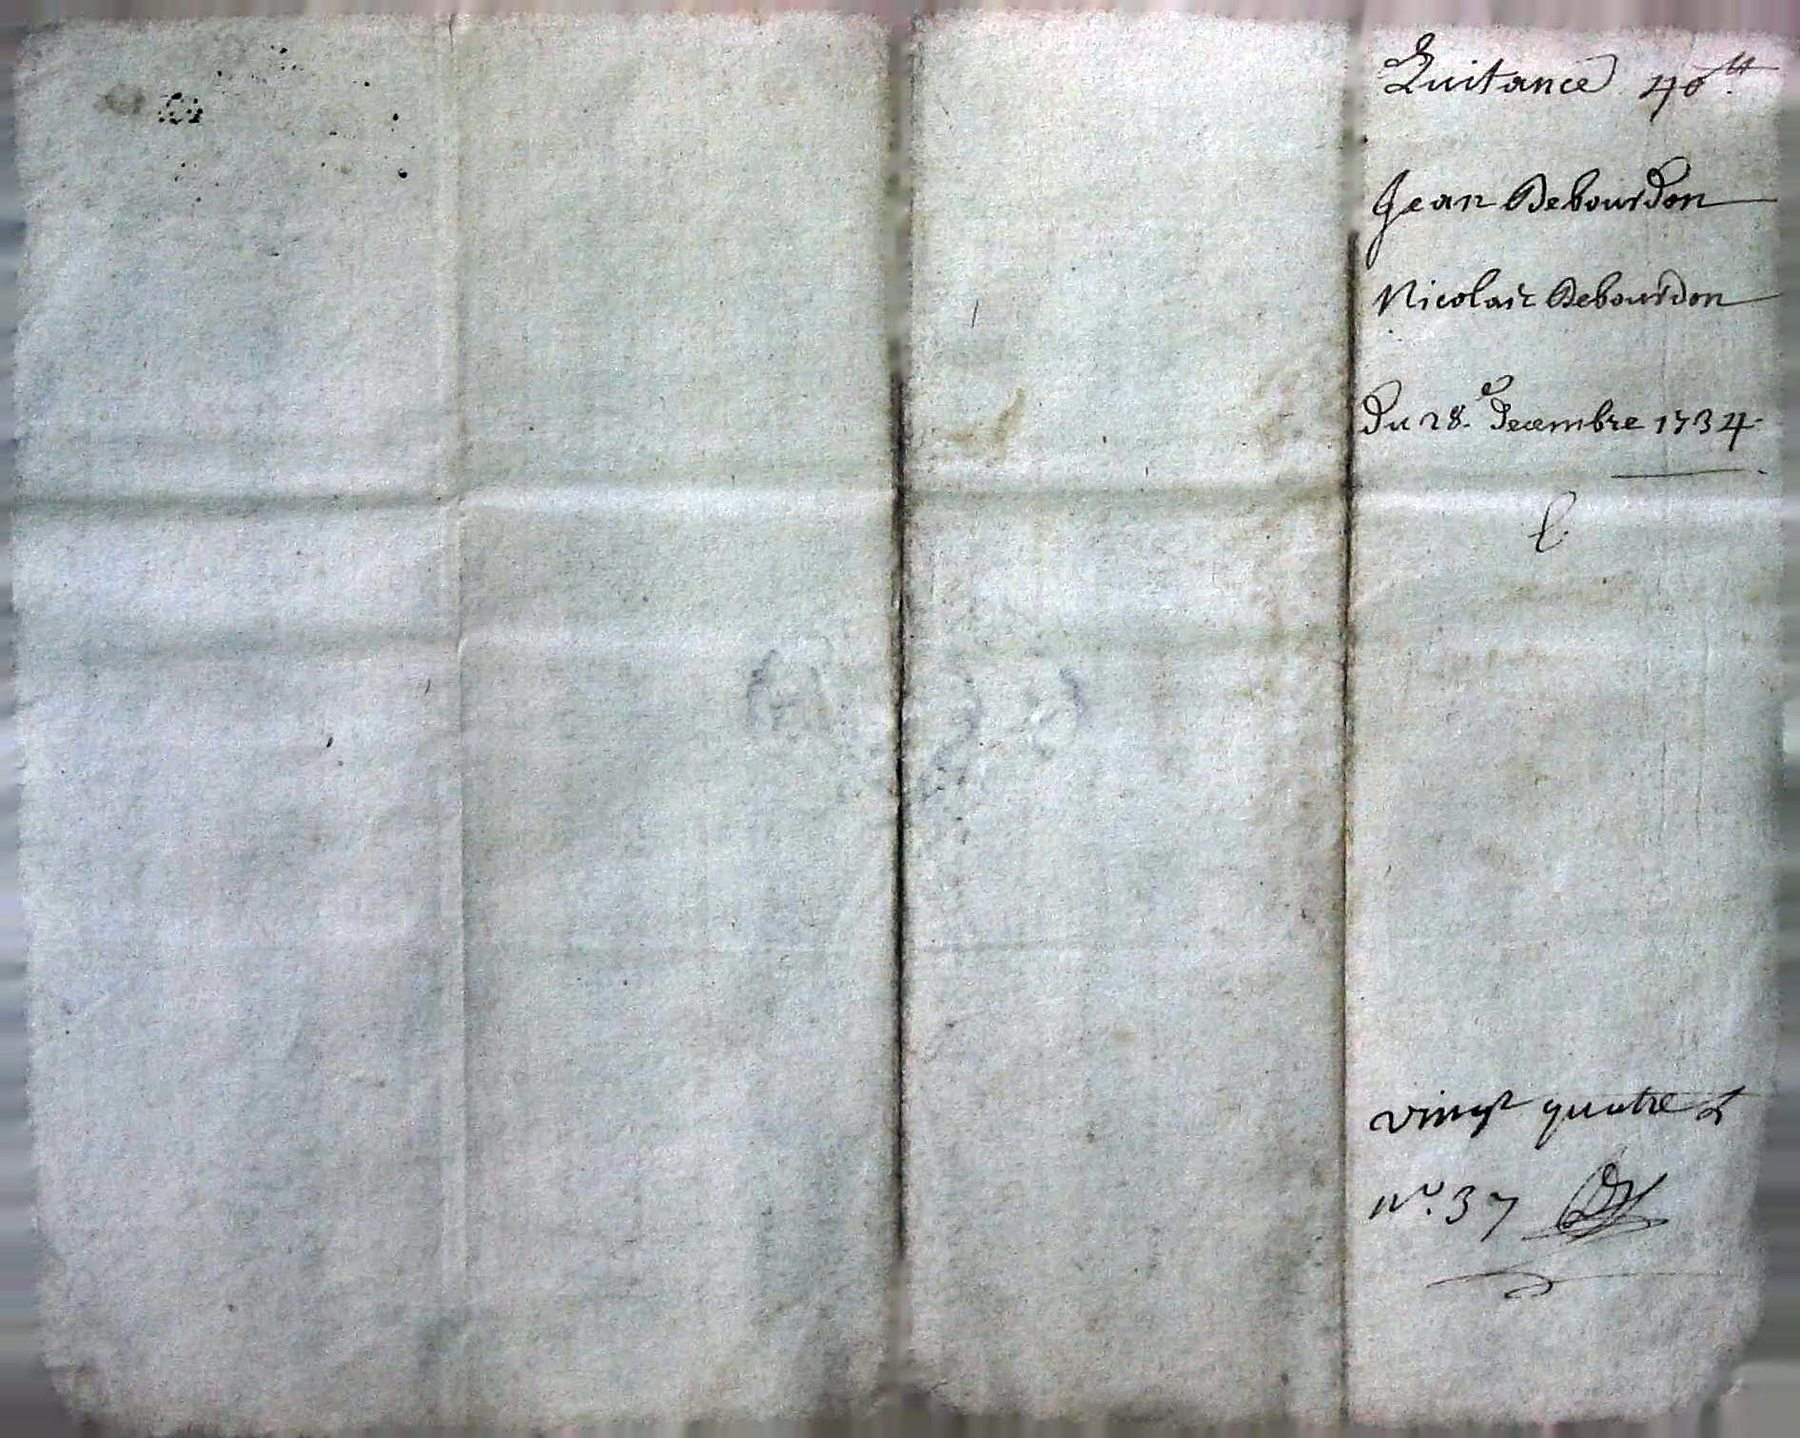 Quitance 40tt.
Jean Debourdon
Nicolais Debourdon
du 28.e decembre 1734
vingt quatre
No. 37